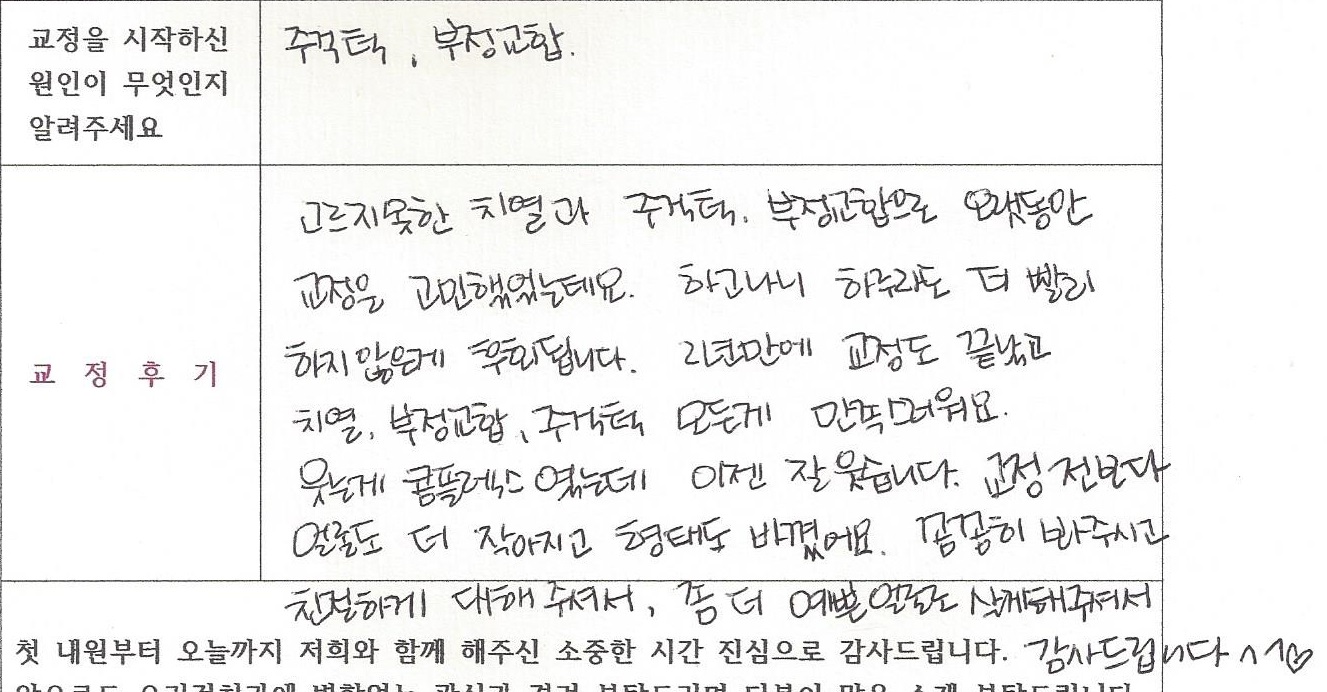 교정을 시작하신
원인이 무엇인지
알려주세요
주걱턱, 부정교합.
교 정 후 기
고르지못한 치열과 주걱턱, 부정교합으로 오랫동안
교정을 고민했었는데요. 하고나니 하루라도 더 빨리
하지 않은게 후회됩니다. 2년만에 교정도 끝났고
치열, 부정교합, 주걱턱 모든게 만족스러워요.
웃는게 콤플렉스였는데 이젠 잘 웃습니다. 교정 전보다
얼굴도 더 작아지고 형태도 바꼈어요. 꼼꼼히 봐주시고
친절하게 대해 주셔서, 좀 더 예쁜얼굴로 살게해주셔서
첫 내원부터 오늘까지 저희와 함께 해주신 소중한 시간 진심으로 감사드립니다. 감사드립니다 ^1♡